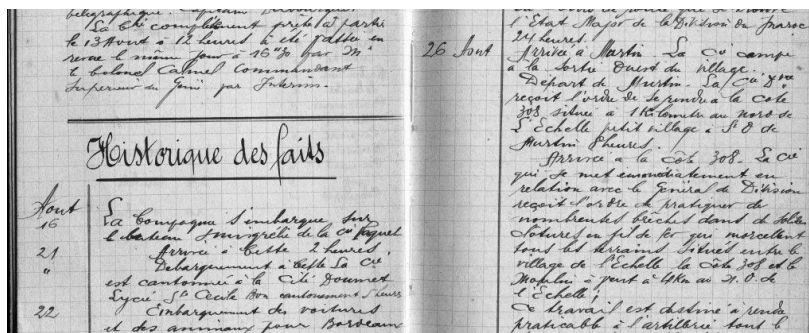 télégraphique. Capitaine
La Cie complètement prête à partir
le 13 Aout à 12 heures a été passée en
revue le même jour à 16h30 par Mr
le Colonel Calmel Commandant
Supérieur du Génie par Interim.
Historique des faits
Aout
16 La Compagnie s'embarque sur
le bateau de la Cie Paquet
21 Arrivée à Cette 2 heures
" Débarquement à Cette La Cie
est cantonnée à la Cité Doumet
Lycée Ste Cécile Bon cantonnement
22 Embarquement des voitures
et des animaux pour Bordeaux
l'Etat Major de la Division du Maroc
24 heures.
26 Aout Arrivée à Murtin. La Cie campe
à la Sortie Ouest du village.
Départ de Murtin. La Cie
reçoit l'ordre de se rendre à la Cote
308 située à 1 Kilomètre au nord de
L'Echelle petit village à S.O de
Murtin heures.
Arrivée à la côte 308. La Cie
qui se met immédiatement en
relation avec le Général de Division
reçoit l'ordre de pratiquer de
nombreuses brèches dans de solides
clotures en fil de fer qui morcellent
tous les terrains situés entre le
village de l'Echelle la côte 308 et le
Moulin à vent à 4Km au N.O. de
l'Echelle;
Ce travail est destiné à rendre
praticable à l'artillerie tout le